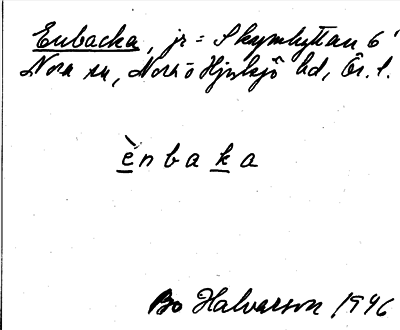 Enbacka, jr = Skymhyttan 6'
Nora sn, Nora o Hjulsjö hd, Ör. l.
ènbaka
Bo Halvarson 1946